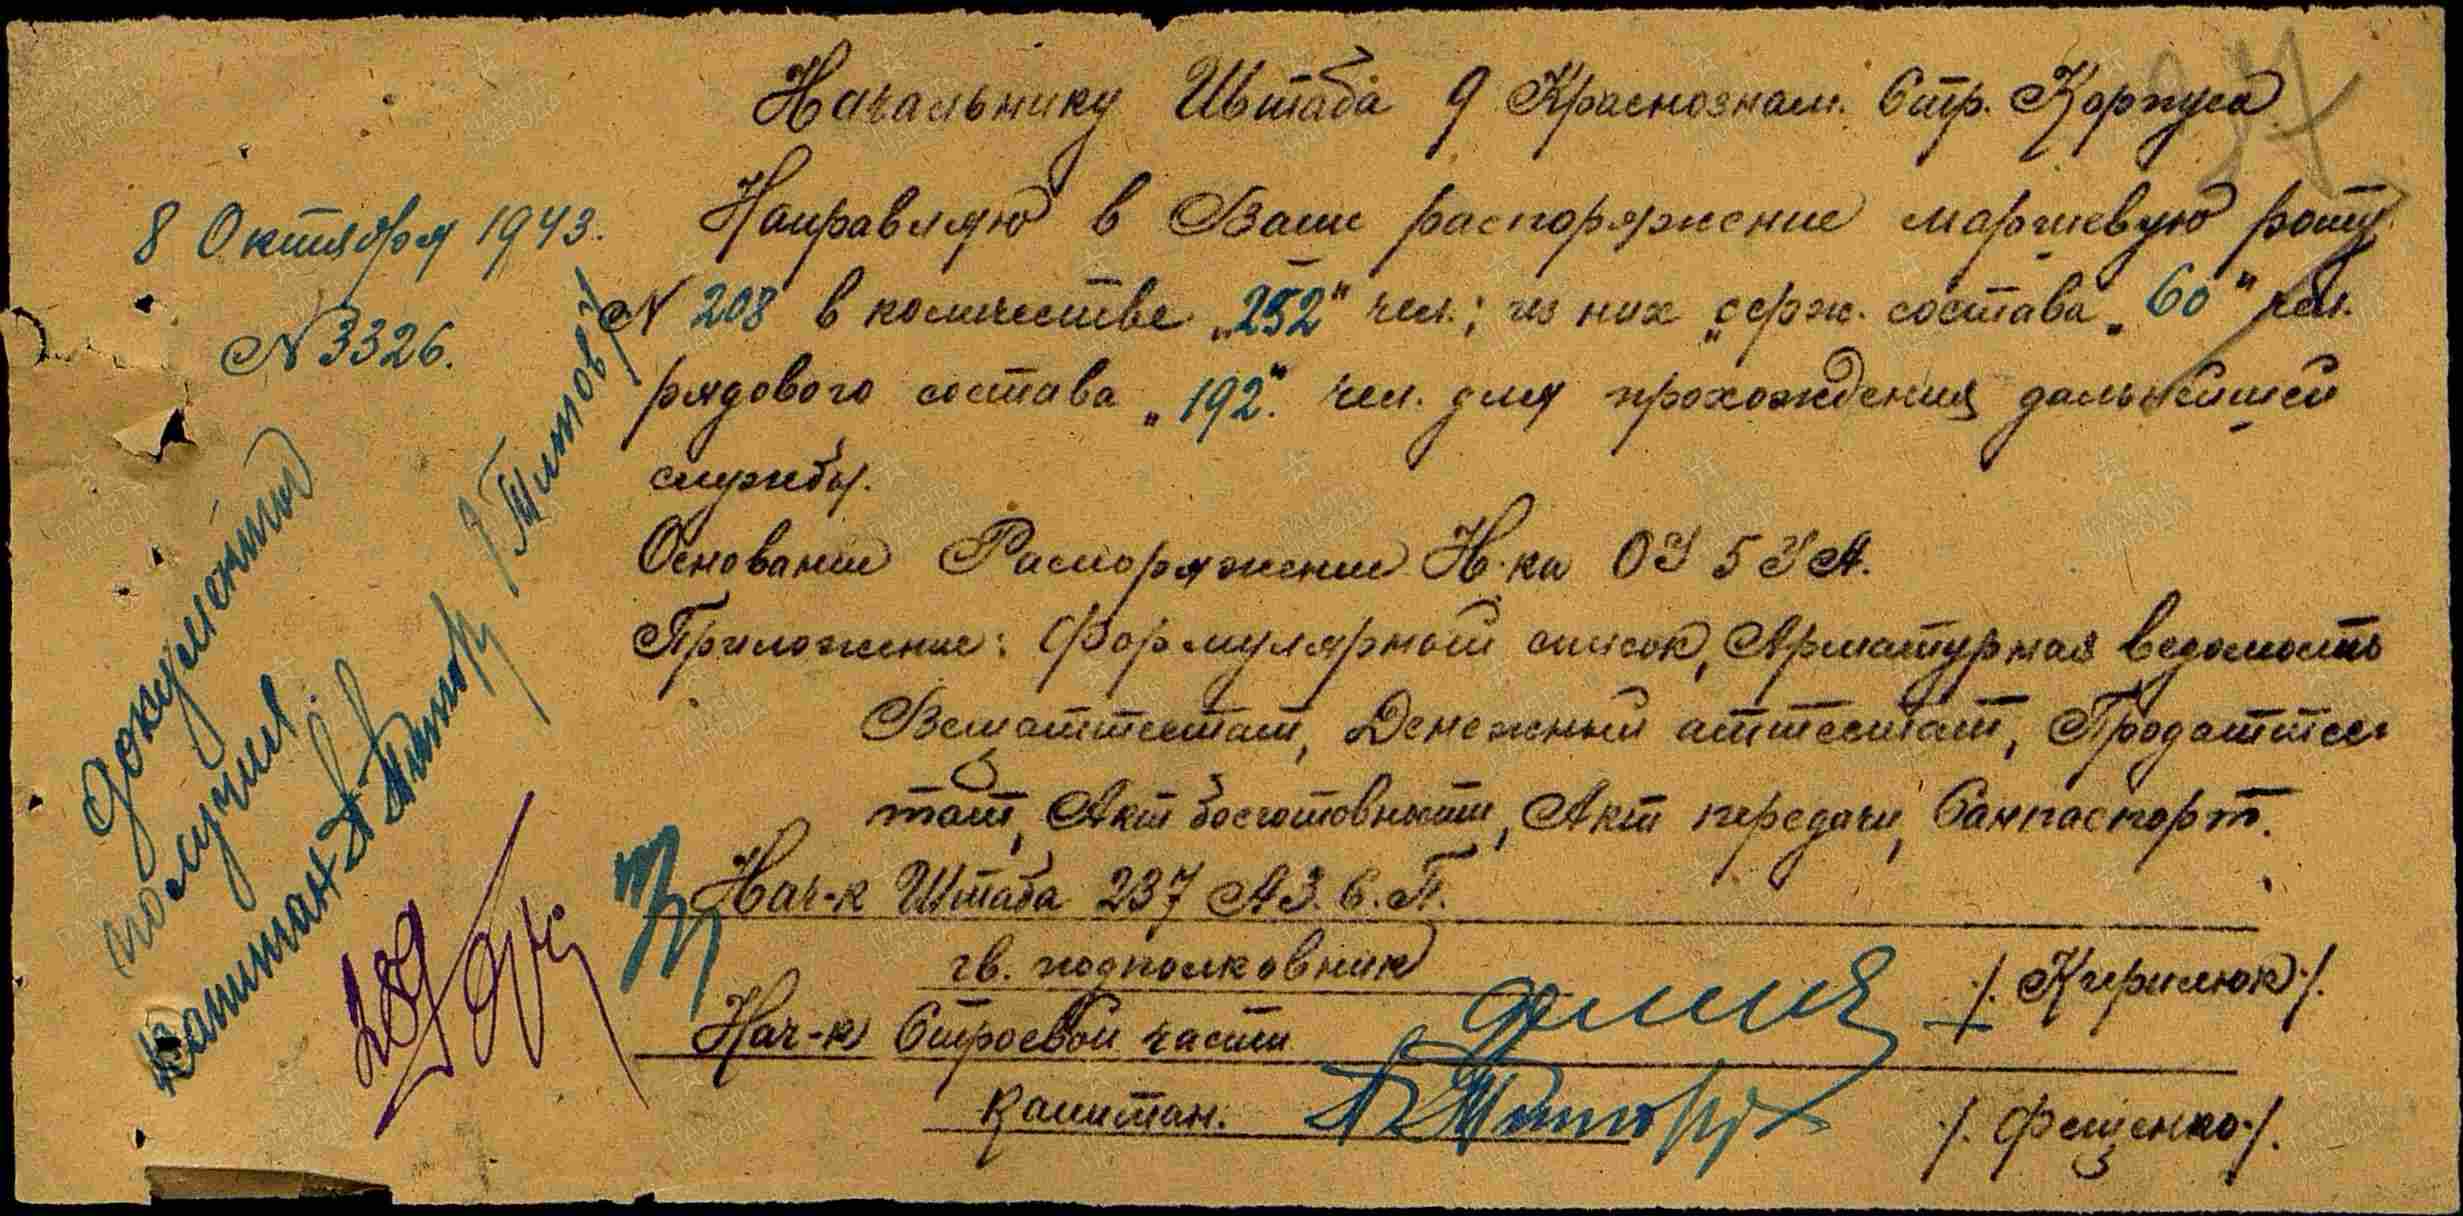 Начальнику Штаба 9 Краснознам. Стр. Корпуса
8 Октября 1943.
N 3326.
Направляю в Ваше распоряжение маршевую роту
N 208 в количестве „252" чел.; из них „серж. состава „60" чел.
рядового состава „192" чел. для прохождения дальнейшей
службы.
Основание Распоряжение Н-ка ОУ 5 УА.
Приложение: Формулярный список, Арматурная ведомость
Вещаттестат, Денежный аттестат, Продаттес-
тат, Акт боеготовности, Акт передачи, Санпаспорт.
Нач-к Штаба 237 АЗ.С.П.
гв. подполковник /. Кирилюк ./.
Нач-к Строевой части
капитан. /. Фещенко ./.
Документы
получил
капитан